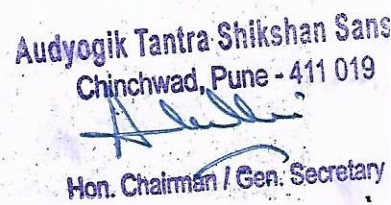 Audyogik Tantra Shikshan Sans
Chinchwad, Pune - 411 019
Hon. Chairman / Gen. Secretary